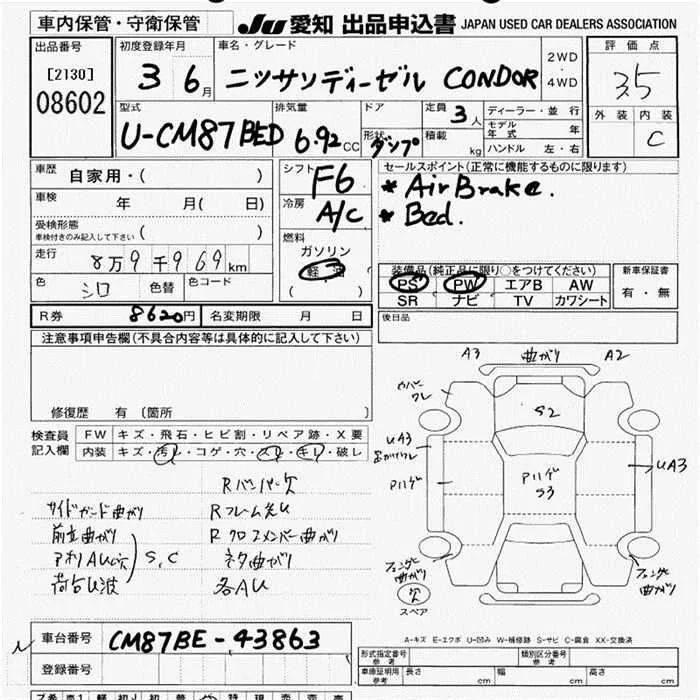 車内保管・守衛保管
JU 愛知 出品申込書 JAPAN USED CAR DEALERS ASSOCIATION
出品番号
[2130]
08602
初度登録年月
3 6月
車名・グレード
ニッサンディーゼル CONDOR
2WD
・
4WD
評価点
3.5
外装 内装
C
型式
U-CM87BED
排気量
6.92 CC
ドア
形状
ダンプ
定員 3人
積載 kg
ディーラー・並行
モデル年式 年
ハンドル 左・右
車歴 自家用・( )
車検 年 月( 日)
受検形態
車検付きのみ記入して下さい ( )
走行 8万9千969km
色 シロ 色替 色コード
シフト F6
冷房 A/C
燃料
ガソリン
軽油
( )
セールスポイント(正常に機能するものに限ります)
* Air Brake.
* Bed.
装備品(純正品に限り○をつけてください)
PS PW エアB AW
SR ナビ TV カワシート
新車保証書
有・無
R券 8620円 名変期限 月 日
後日品
注意事項申告欄(不具合内容等は具体的に記入して下さい)
修復歴 有 (箇所 )
検査員記入欄
FW キズ・飛石・ヒビ割・リペア跡・X要
内装 キズ・汚れ・コゲ・穴・スレ・キレ・破レ
Rバンパー欠
サイドガード曲がり Rフレーム先U
前立曲がり Rクロスメンバー曲がり
アオリAU穴 S,C ネタ曲がり
荷台U波 各AU
A3 曲がり A2
カバーワレ
S2
UA3
Pハゲ
Pハゲ
S3
UA3
フェンダー曲がり
フェンダー曲がり
欠
スペア
A-キズ E-エクボ U-凹み W-補修跡 S-サビ C-腐食 XX-交換済
車台番号 CM87BE-43863
登録番号
型式指定番号
参考
類別区分番号
参考
車庫証明用
参考
長さ cm 幅 cm 高さ cm